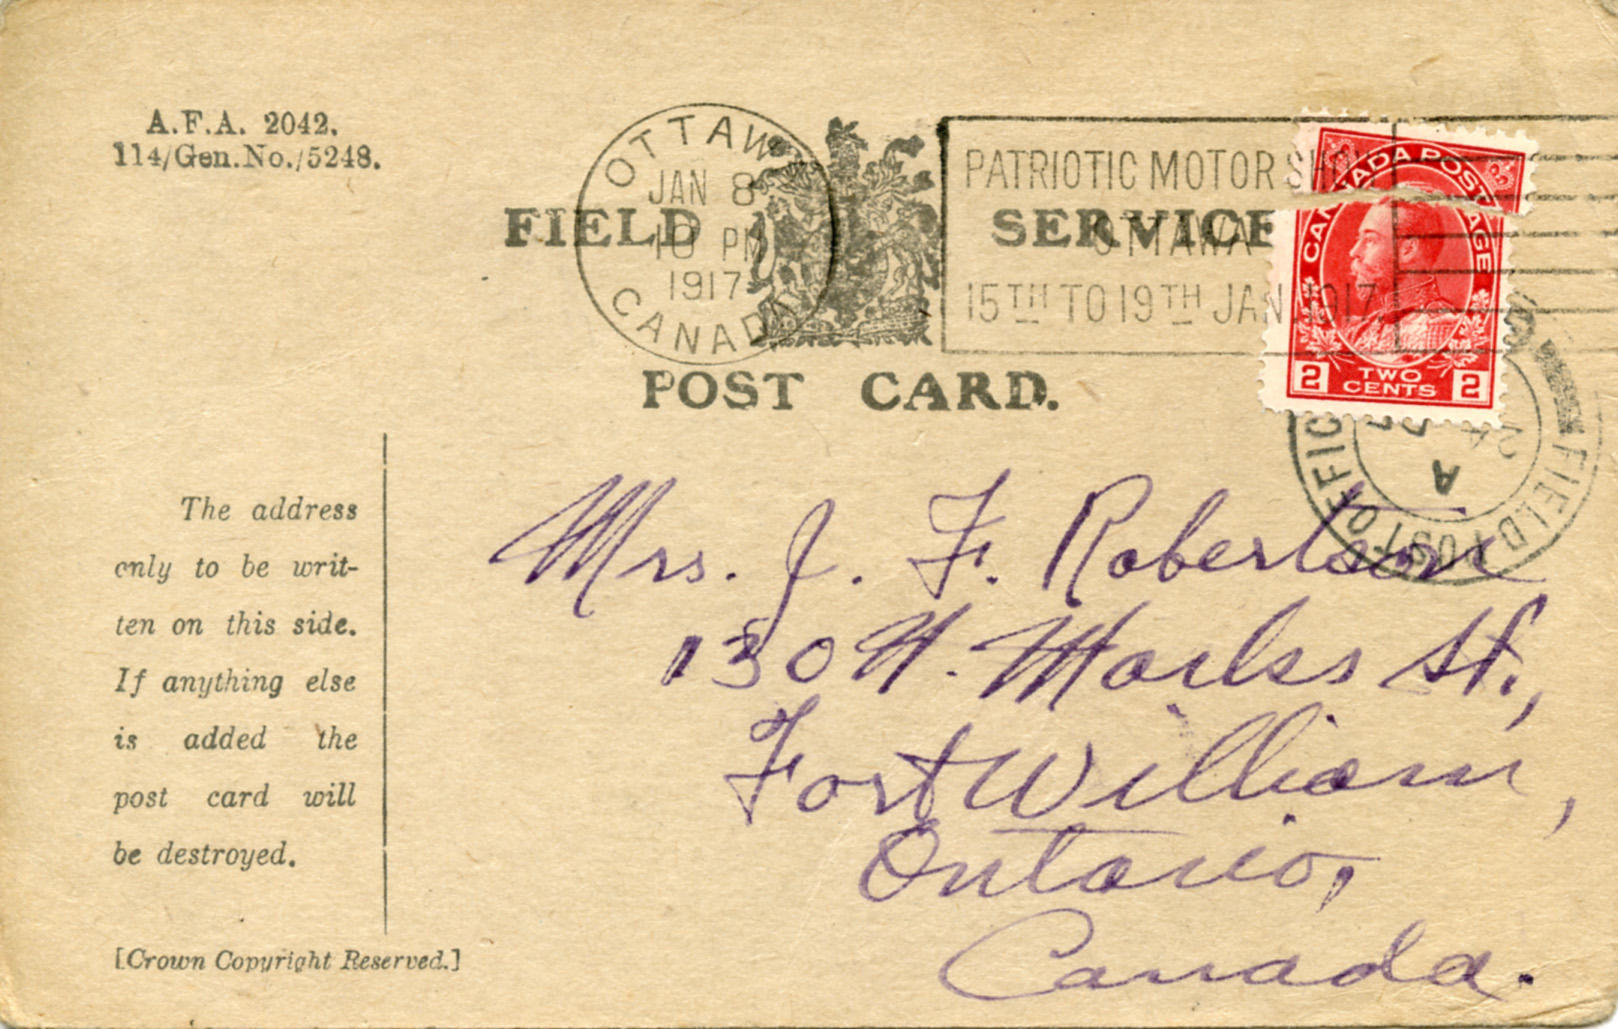 A.F.A. 2042.
114/Gen.No./5248.
OTTAWA
JAN 8
10 PM
1917
CANADA
PATRIOTIC MOTOR SHOW
OTTAWA
15TH TO 19TH JAN 1917
CANADA POSTAGE
2 TWO CENTS 2
FIELD SERVICE
POST CARD.
FIELD POST OFFICE
A
The address
only to be writ-
ten on this side.
If anything else
is added the
post card will
be destroyed.
[Crown Copyright Reserved.]
Mrs. J. F. Robertson
130 N. Marks St.,
Fort William,
Ontario,
Canada.